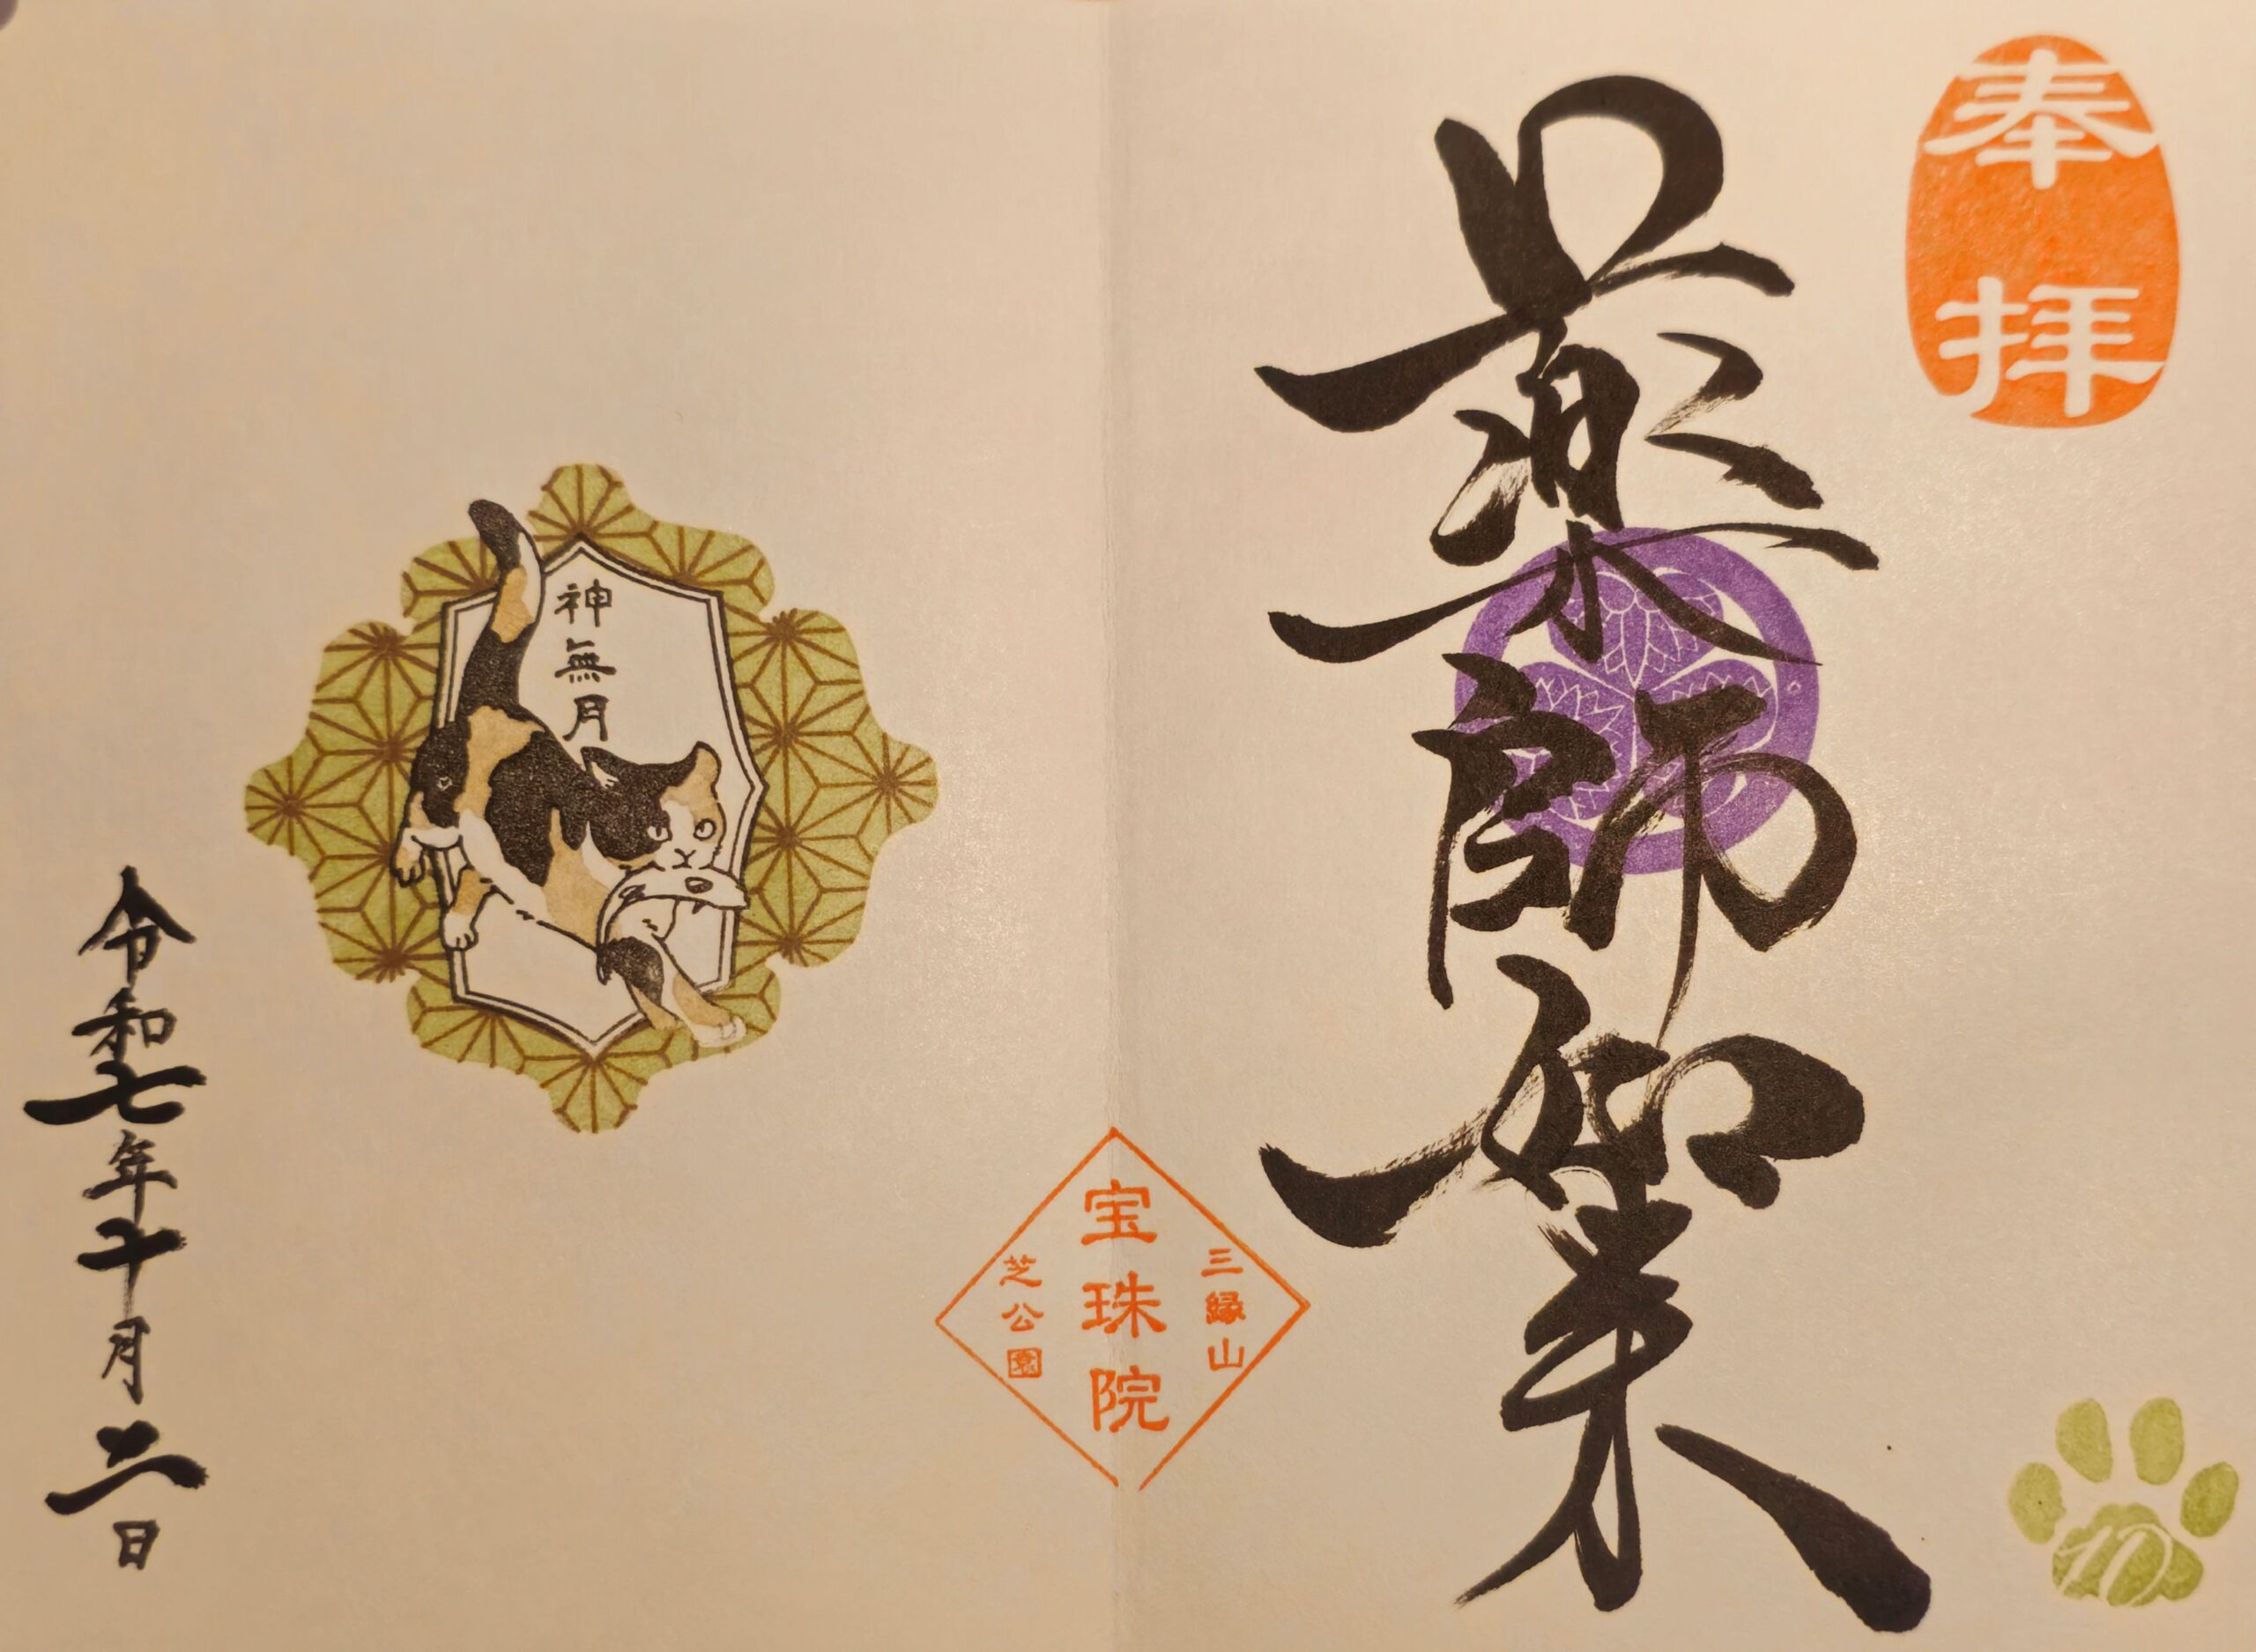 奉拝
薬師如来
三縁山
宝珠院
芝公園
神無月
令和七年十月二日
10